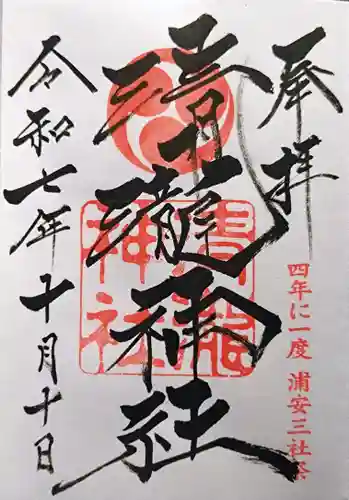 奉拝
四年に一度 浦安三社祭
清瀧神社
清瀧神社
令和七年十月十日